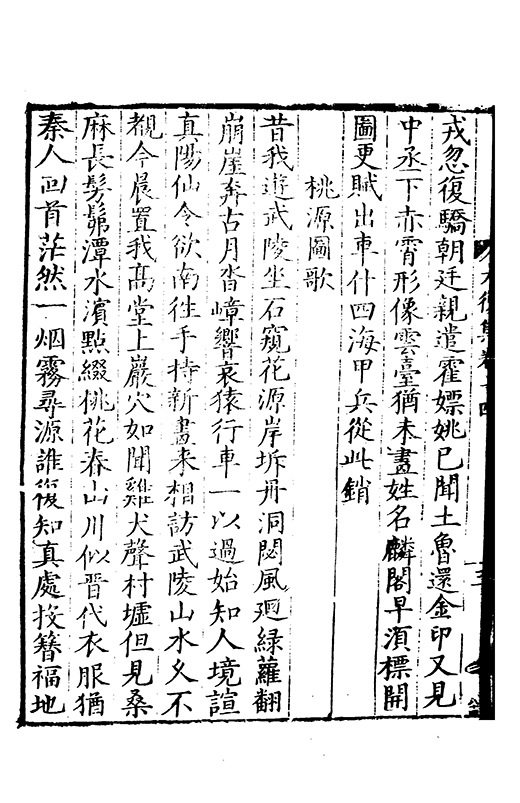 戎忽復驕朝廷親遣霍嫖姚已聞土魯還金印又見
中丞下赤霄形像雲臺猶未畫姓名麟閣早須標開
圖更賦出車什四海甲兵從此銷
桃源圖歌
昔我遊武陵坐石窺花源岸坼丹洞閟風廻綠蘿翻
崩崖奔古月沓嶂響哀猿行車一以過始知人境諠
真陽仙令欲南徃手持新畫来相訪武陵山水久不
覩今晨置我髙堂上巖穴如聞雞犬聲村墟但見桑
麻長髣髴潭水濱點綴桃花春山川似晋代衣服猶
秦人回首茫然一烟霧尋源誰復知真處投簮福地